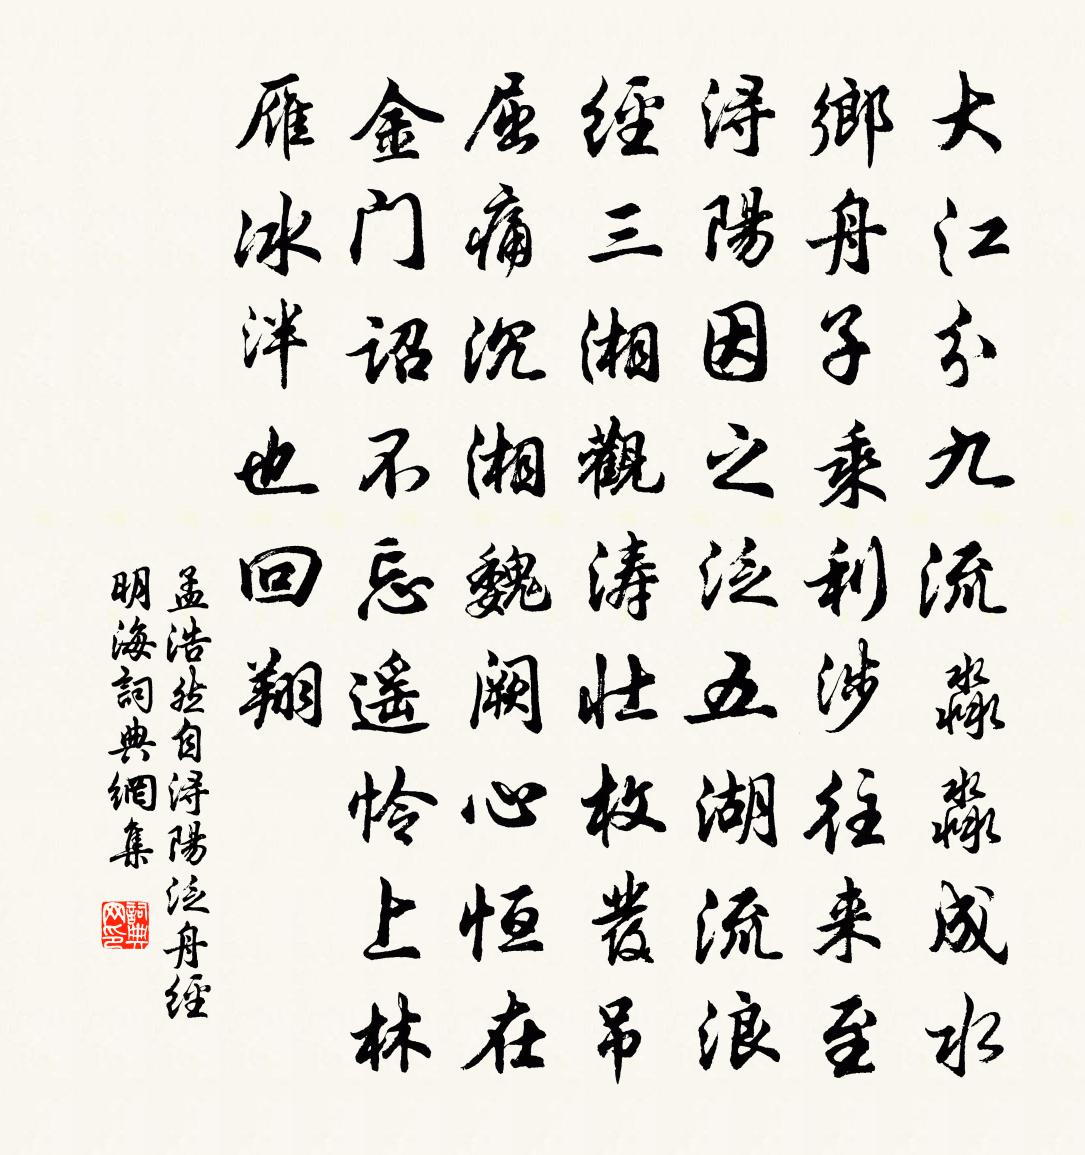 大江分九流淼淼成水
鄉舟子乘利涉往来至
潯陽因之泛五湖流浪
經三湘觀濤壯枚發吊
屈痛沉湘魏阙心恒在
金门詔不忘遥怜上林
雁冰泮也回翔
孟浩然自潯陽泛舟經
明海詞典網集
詞典网印